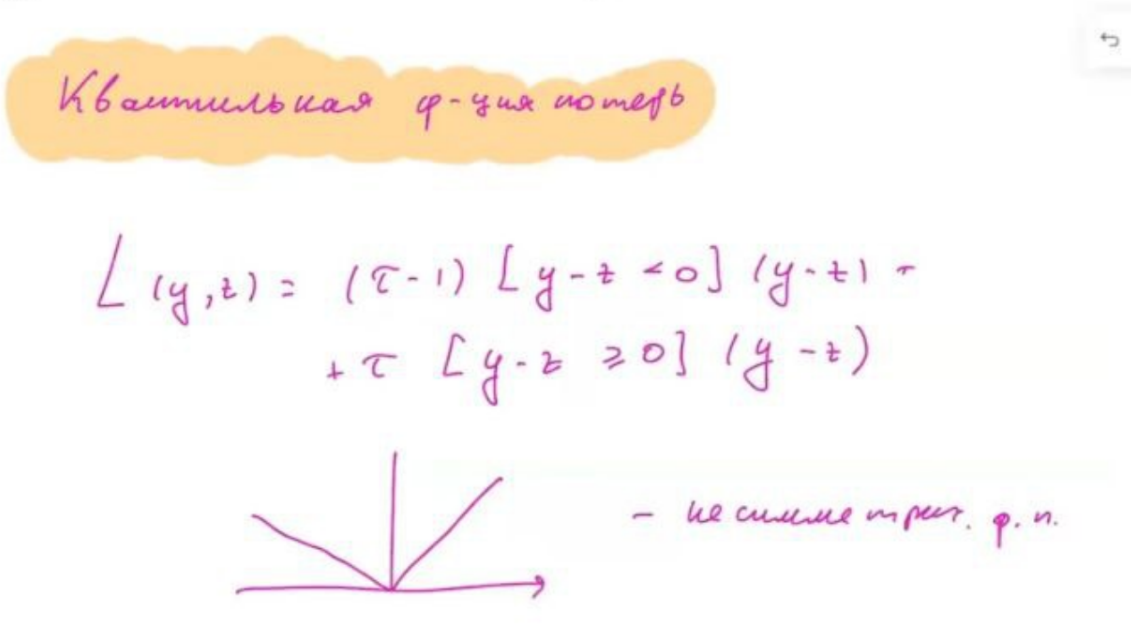 Квантильная ф-ция потерь
L(y,z) = (τ-1) [y-z <0] (y-z) +
+ τ [y-z ≥0] (y-z)
- не симметрич. ф.п.